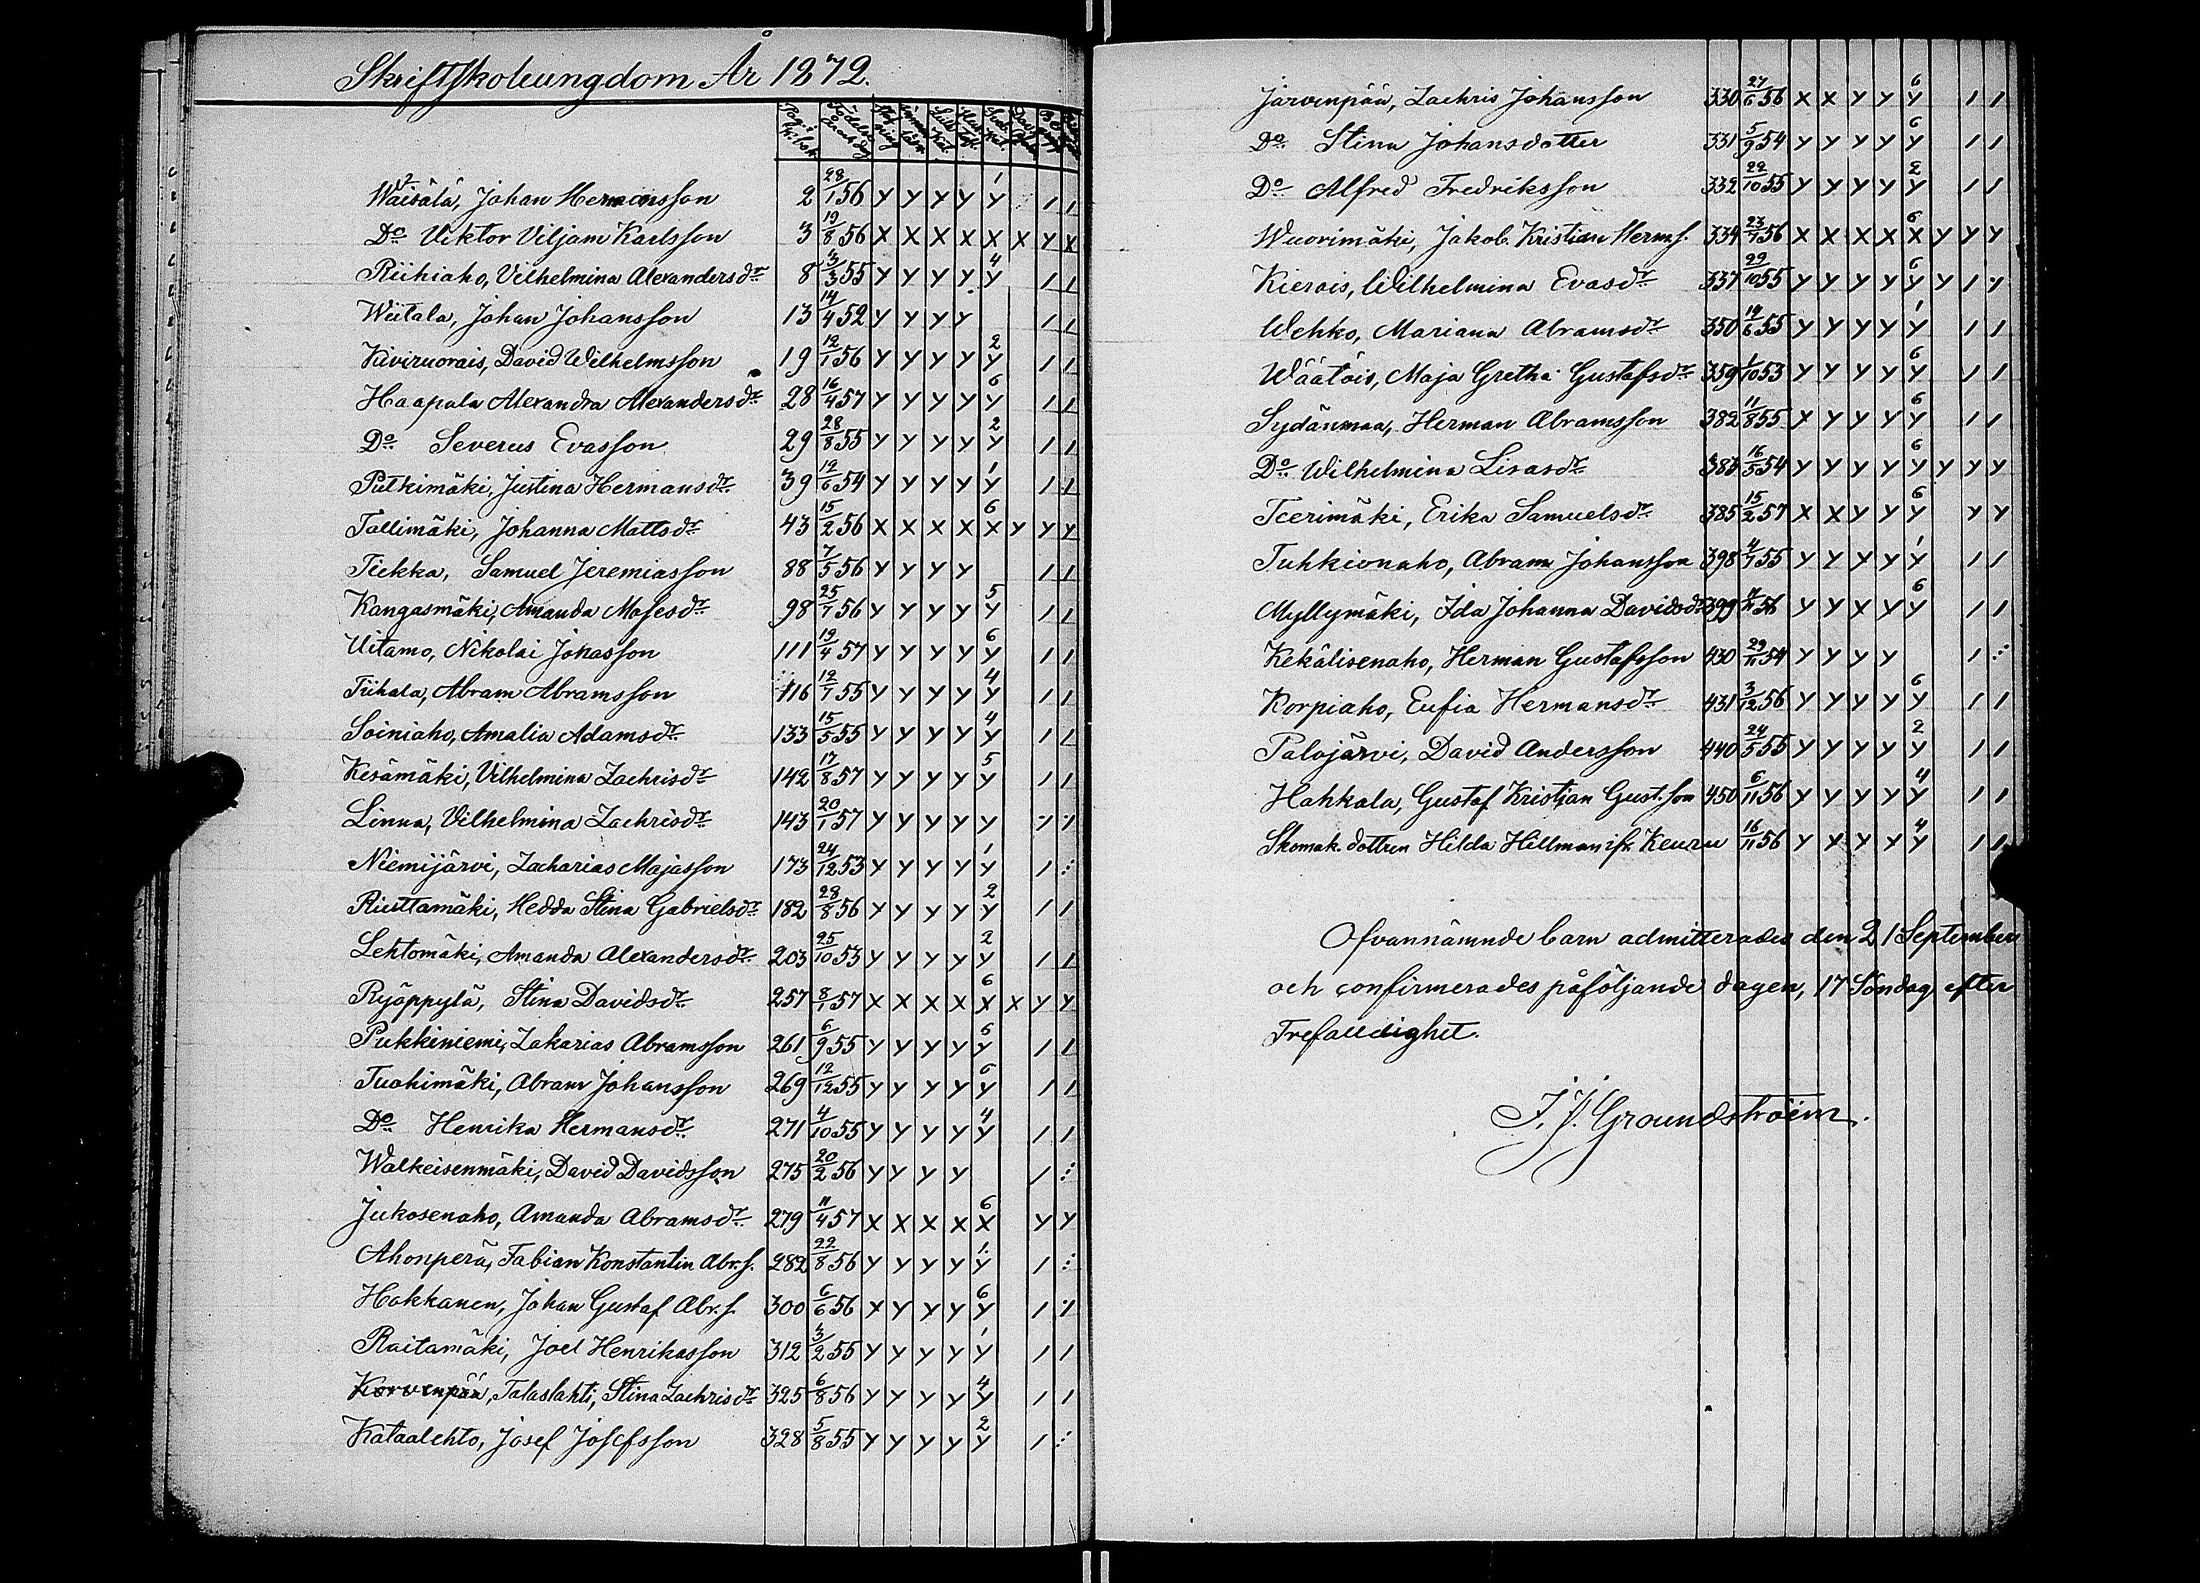 Skriftskoleungdom År 1872.
Wäisälä, Johan Hermansson 2 28/1 56 Y Y Y Y 1 Y / /
Do Viktor Viljam Karlsson 3 19/8 56 X X X X X X Y X
Riihiaho, Vilhelmina Alexandersdr 8 3/3 55 Y Y Y Y 4 Y / /
Wiitala, Johan Johansson 13 14/4 52 Y Y Y Y / /
Kiviruorais, David Wilhelmsson 19 12/1 56 Y Y Y Y 2 Y / /
Haapala Alexandra Alexandersdr 28 16/4 57 Y Y Y Y 6 Y / /
Do Severus Evasson 29 28/8 55 Y Y Y Y 2 Y / /
Pulkimäki, Justina Hermansdr 39 12/6 54 Y Y Y Y 1 Y / /
Tallimäki, Johanna Mattsdr 43 15/2 56 X X X X 6 X Y Y Y
Tiekka, Samuel Jeremiasson 88 7/5 56 Y Y Y Y / /
Kangasmäki, Amanda Mosesdr 98 25/7 56 Y Y Y Y 5 Y / /
Uitamo, Nikolai Jonasson 111 19/4 57 Y Y Y Y 6 Y / /
Tiihala, Abram Abramsson 116 12/7 55 Y Y Y Y 4 Y / /
Soiniaho, Amalia Adamsdr 133 15/5 55 Y Y Y Y 4 Y / /
Kesämäki, Vilhelmina Zachrisdr 142 17/8 57 Y Y Y Y 5 Y / /
Linna, Vilhelmina Zachrisdr 143 20/1 57 Y Y Y Y Y ·/· ·/·
Niemijärvi, Zacharias Majasson 173 24/12 53 Y Y Y Y 1 Y / :
Riuttamäki, Hedda Stina Gabrielsdr 182 28/8 56 Y Y Y Y 2 Y / /
Lehtomäki, Amanda Alexandersdr 203 25/10 53 Y Y Y Y 2 Y / /
Ryöppylä, Stina Davidsdr 257 8/1 57 X X X X 6 X X Y Y
Pukkiniemi, Zakarias Abramsson 261 6/9 55 Y Y Y Y 6 Y / /
Tuohimäki, Abram Johansson 269 12/12 55 Y Y Y Y 6 Y / /
Do Henrika Hermansdr 271 4/10 55 Y Y Y Y 4 Y / /
Walkeisenmäki, David Davidsson 275 20/2 56 Y Y Y Y / :
Jukosenaho, Amanda Abramsdr 279 11/4 57 X X X X 6 X Y Y
Ahonperä, Fabian Konstantin Abr.s. 282 22/8 56 Y Y Y Y 1 Y / :
Hakkanen, Johan Gustaf Abr.s. 300 6/6 56 X Y Y Y 6 Y / ·/
Raitamäki, Joel Henrikasson 312 3/2 55 Y Y Y Y 1 Y / /
Korvenpää, Talaslahti, Stina Zachrisdr 325 6/8 56 Y Y Y Y 4 Y / /
Kataalehto, Josef Josefsson 328 5/8 55 Y Y Y Y 2 Y / :
Järvenpää, Zachris Johansson 330 27/6 56 X X Y Y 6 Y / /
Do Stina Johansdotter 331 5/9 54 Y Y Y Y 6 Y / /
Do Alfred Fredriksson 332 22/10 55 Y Y Y Y 2 Y / /
Wuorimäki, Jakob Kristian Herm.s. 334 23/7 56 X X X X 6 X Y Y Y
Kierois, Wilhelmina Evasdr 337 29/10 55 Y Y Y Y 6 Y Y / Y
Wehko, Mariana Abramsdr 350 19/6 55 Y Y Y Y 1 Y / /
Wäätöis, Maja Gretha Gustafsdr 359 1/10 53 Y Y Y Y 6 Y / /
Sydänmaa, Herman Abramsson 382 11/8 55 X Y Y Y 6 Y / /
Do Wilhelmina Lisasdr 383 16/5 54 Y Y Y Y 6 Y Y Y Y
Teerimäki, Erika Samuelsdr 385 15/2 57 X X Y Y 6 Y Y Y
Tuhkionaho, Abram Johansson 398 4/7 55 Y Y Y Y 1 Y / /
Myllymäki, Ida Johanna Davidsdr 399 56 Y Y X Y 6 Y / /
Kekälisenaho, Herman Gustafsson 430 29/11 54 Y Y Y Y / :
Korpiaho, Eufia Hermansdr 431 3/12 56 Y Y Y Y 6 Y / /
Palojärvi, David Andersson 440 24/5 55 Y Y Y Y 2 Y / /
Hahkala, Gustaf Kristjan Gust.son 450 6/11 56 Y Y Y Y 4 Y / /
Skomak. dottren Hilda Hillman ifr. Keuru 16/11 56 Y Y Y Y 4 Y / /
Ofvannämnde barn admitterades den 21 September
och confirmerades påföljande dagen, 17 Söndag efter
Trefalldighet.
J. J. Groundstroëm.